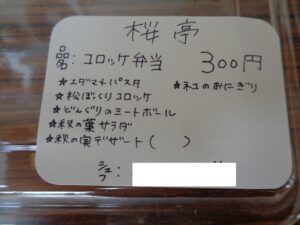 桜亭
品名: コロッケ弁当 300円
★エダマメパスタ ★ネコのおにぎり
★松ぼっくりコロッケ
★どんぐりのミートボール
★秋の葉サラダ
★秋の実デザート( )
シェフ: